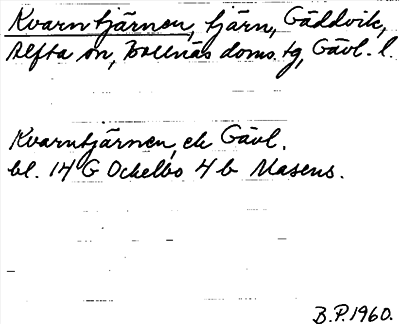 Kvarntjärnen, tjärn, Gäddvik,
Alfta sn, Bollnäs doms. tg, Gävl. l.
Kvarntjärnen, ek Gävl.
bl. 14 G Ockelbo 4 b Masens.
B.P. 1960.